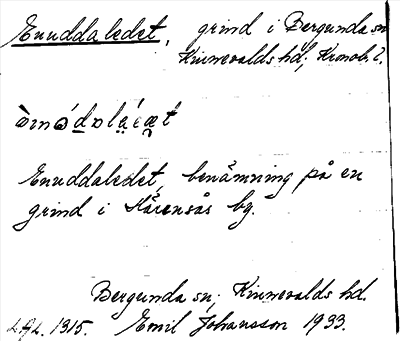 Enuddaledet, grind i Bergunda sn
Kinnevalds hd; Kronob. l.
Enuddaledet, benämning på en
grind i Kårensås bg.
Bergunda sn; Kinnevalds hd.
LAL. 1315. Emil Johansson 1933.